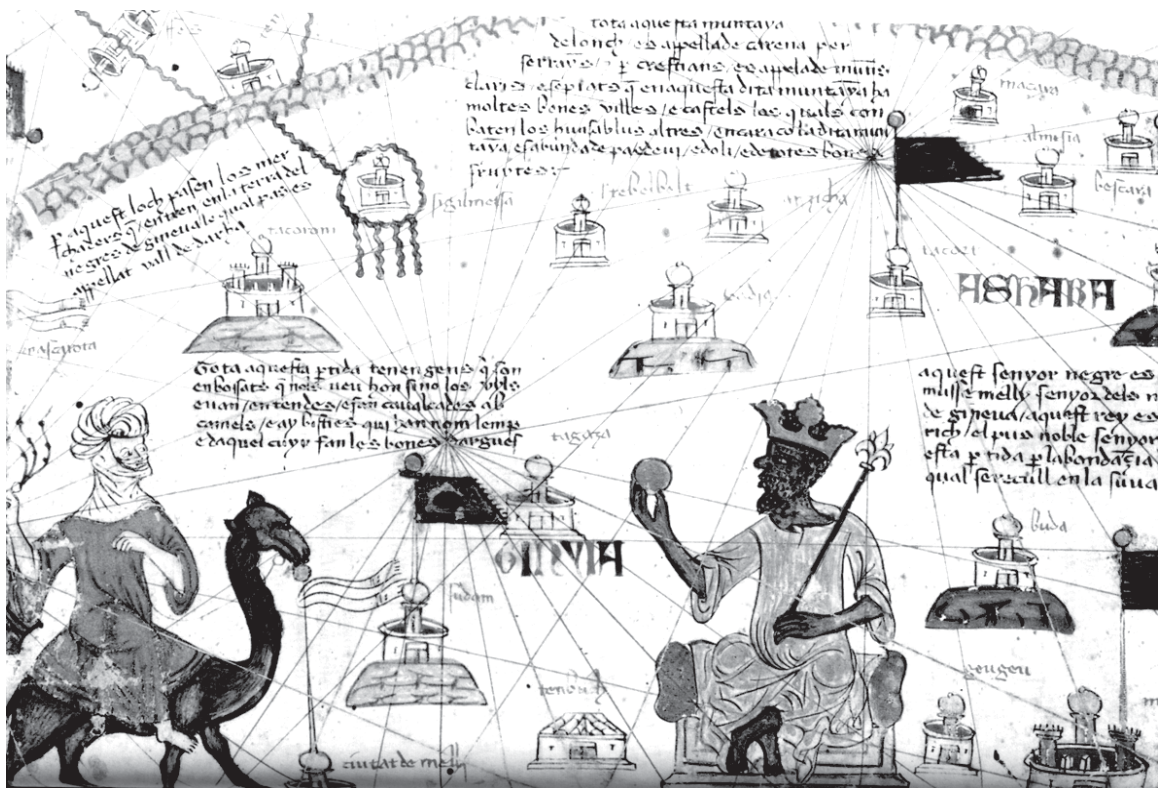 tota aquesta muntaya
de lonch es appellade carena per
serrayns / e p crestians es apelade muntis
claris / e sepiats q en aquesta dita muntaya ha
moltes bones villes / e castels los quals con
baten los huns ab lus altres / encara co la dita mun
taya es abunda de pa e de vi / e doli / e de totes bones
fruytes:-
p aquest loch pasen los mer
chaders q entren en la terra del
negres de gineua lo qual pas es
appellat vall de darha
sigilmessa
tacoroni
tebelbelt
macara
almsia
bescara
tacort
ASHARA
Tota aquesta ptida tenen gens q son
enbossats q nols veu hon sino los uyls
e uan / en tendes / e fan caualcades ab
camels / e ay bisties qui han nom lemp
e daquel cuyr fan les bones dargues
aquest senyor negre es
musse melly senyor dels n
de gineua / aquest rey es
rich / el pus noble senyor
esta ptida p labondacia
qual se recull en la suua
tagaza
GINYIA
buda
sudam
tenbuch
geugeu
ciutat de melly